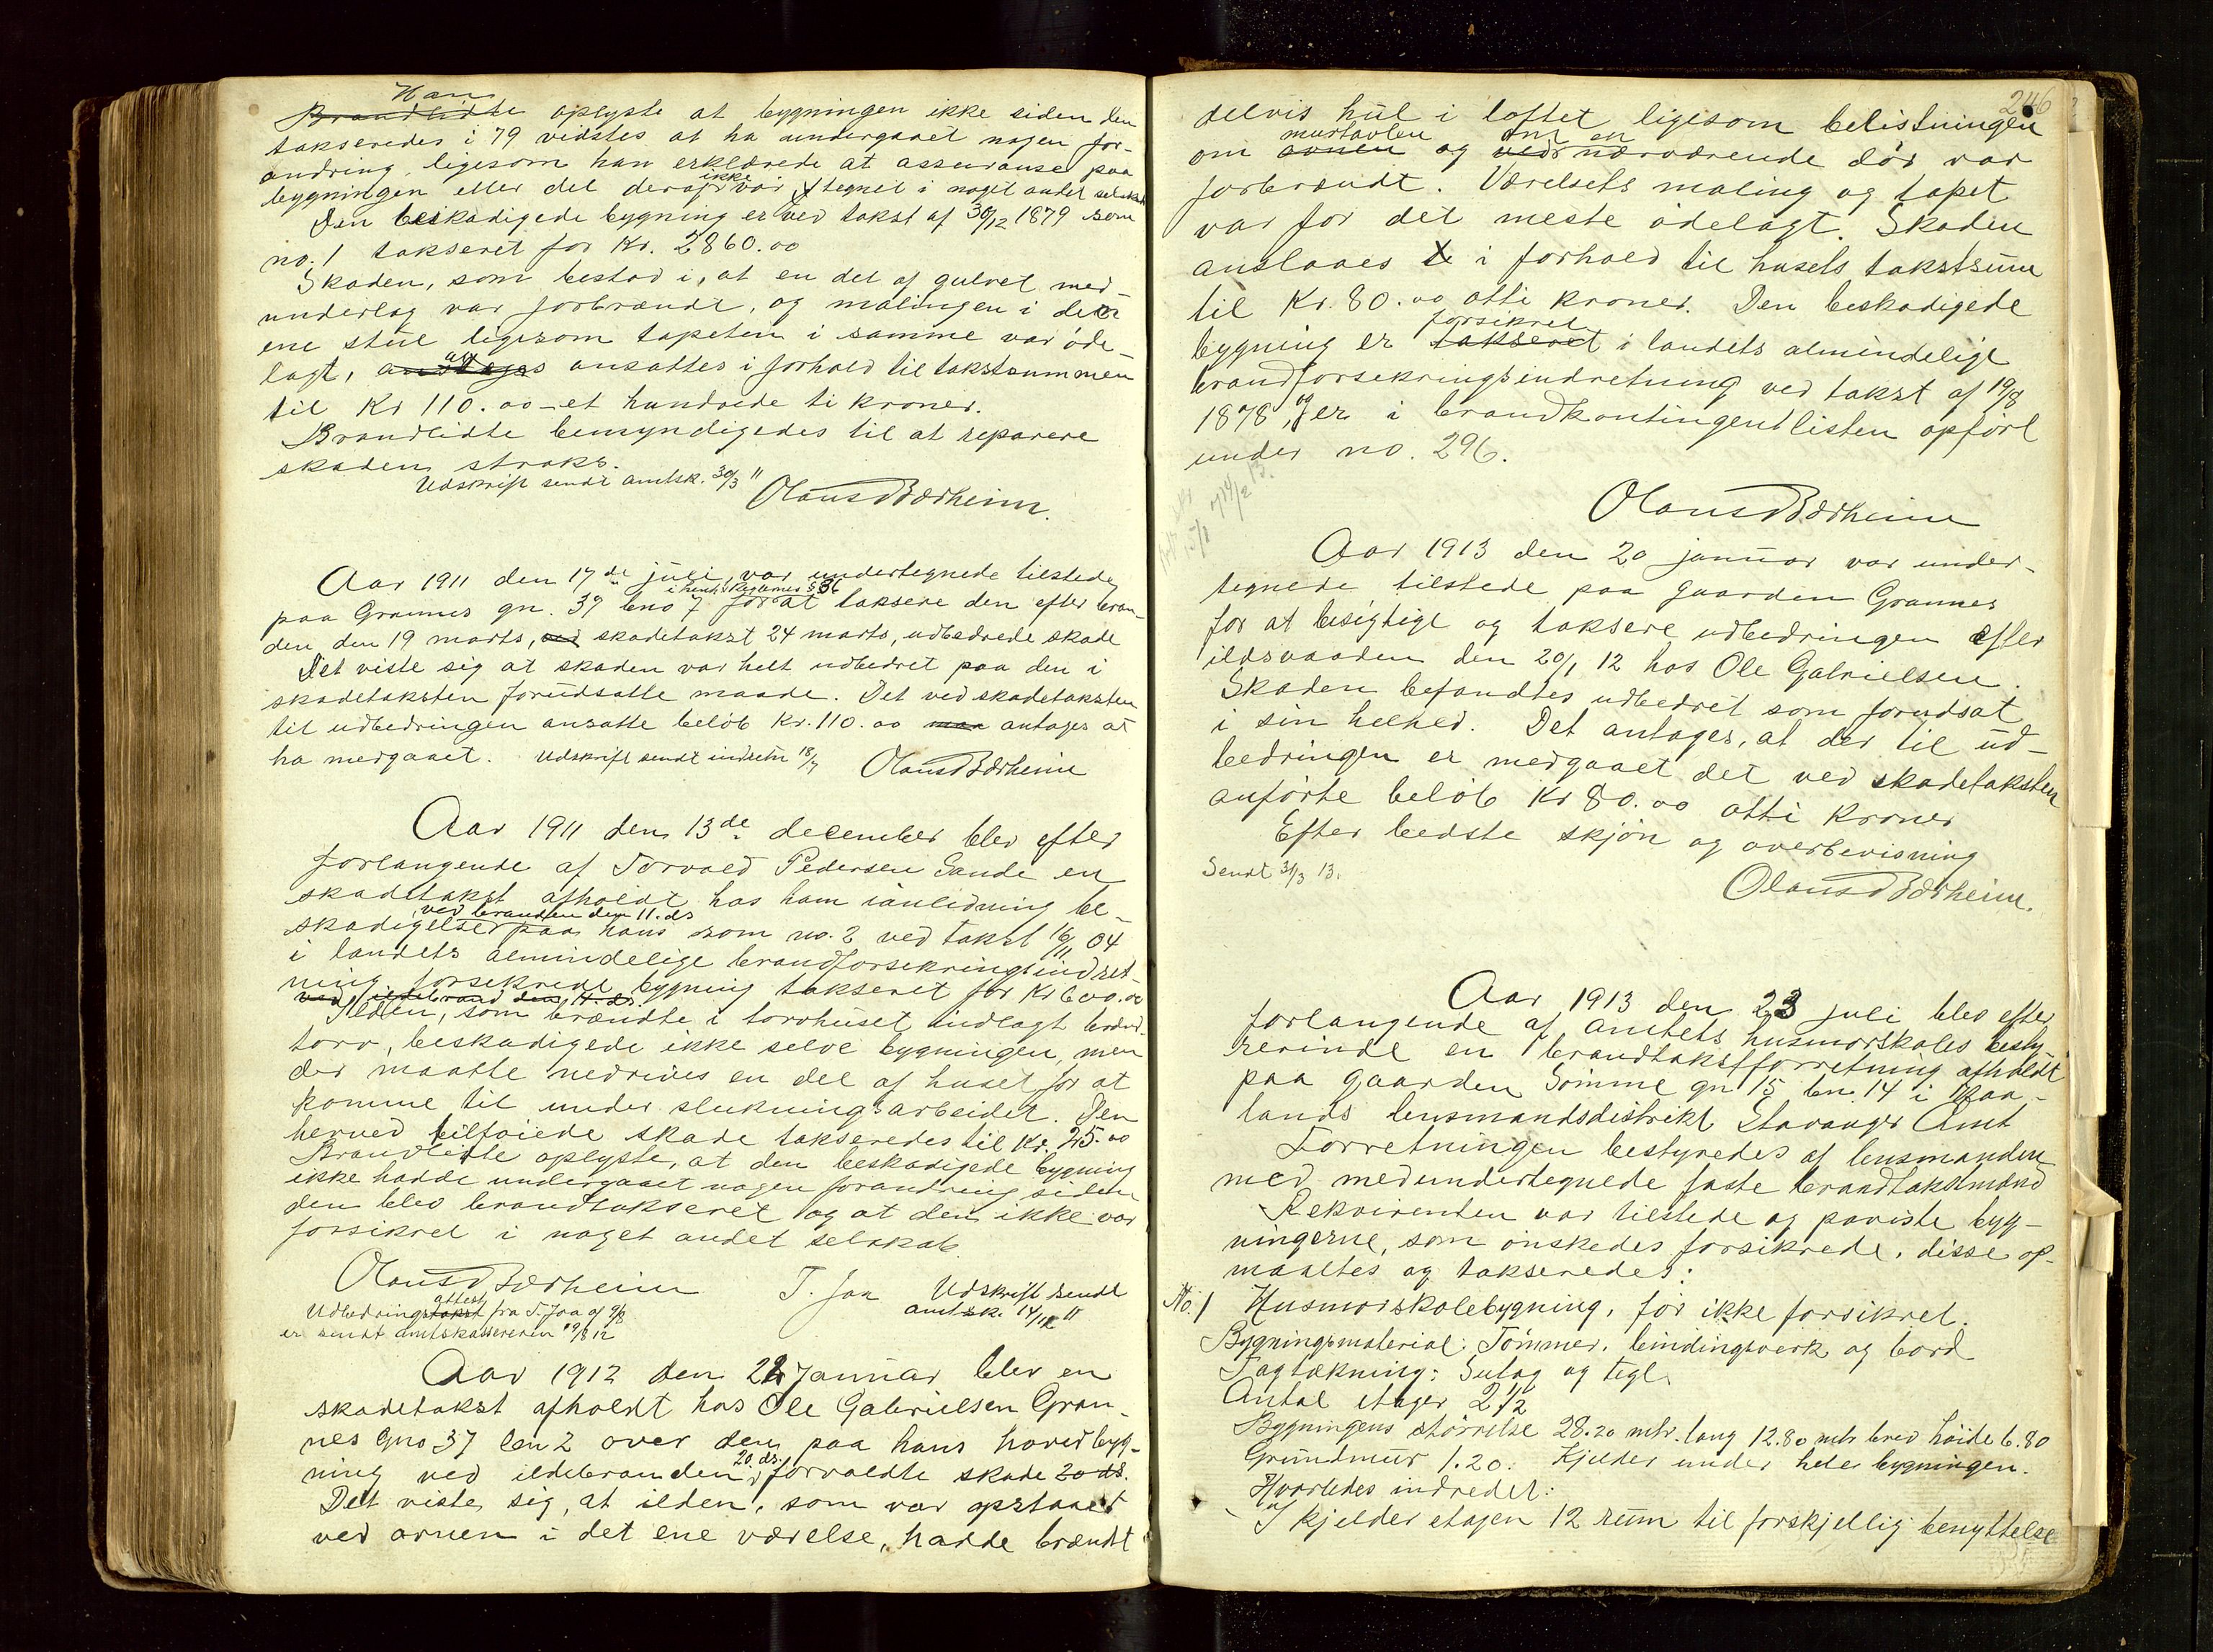 Han
Brandlidte oplyste at bygningen ikke siden den
takseredes i 79 vidstes at ha undergaaet nogen for-
andring, ligesom han erklærede at assurance paa
ikke
bygningen eller del deraf var tegnet i noget andet selskab
Den beskadigede bygning er ved takst af 30/12 1879 som
no. 1 takseret for Kr. 2860.00
Skaden, som bestod i, at en del af gulvet med
underlag var forbrændt, og malingen i den
ene stue ligesom tapeten i samme var öde-
lagt, ansattes i forhold til takstsummen
til Kr 110.00 - et hundrede ti kroner.
Brandlidte bemyndigedes til at reparere
skaden straks.
Udskrift sendt amtsk. 30/3 11
Olaus Bærheim.
Aar 1911 den 17de juli, var undertegnede tilstede
i henh. § 36
paa Grannes gn. 37 bno 7 for at taksere den efter bran-
den den 19 marts, ved skadetakst 24 marts, udbedrede skade
Det viste sig at skaden var helt udbedret paa den i
skadetaksten forudsatte maade. Det ved skadetaksten
til udbedringen ansatte belöb Kr. 110.00 maa antages at
ha medgaaet. Udskrift sendt indretn 18/7 Olaus Bærheim
Aar 1911 den 13de december blev efter
forlangende af Torvald Pedersen Sande en
skadetakst afholdt hos ham i anledning be-
ved branden den 11. ds
skadigelser paa hans som no. 2 ved takst 16/11 04
i landets almindelige brandforsekringsindret-
ning forsekrede bygning takseret for Kr 600.00
ved ildebrand den 11. ds.
Ilden, som brændte i torvhuset indlagt brænd-
torv, beskadigede ikke selve bygningen, men
der maatte nedrives en del af huset for at
komme til under slukningsarbeidet. Den
herved tilföiede skade takseredes til Kr. 25.00
Brandlidte oplyste, at den beskadigede bygning
ikke hadde undergaaet nogen forandring siden
den blev brandtakseret og at den ikke var
forsikret i noget andet selskab.
Olaus Bærheim T. Joa Udskrift sendt
amtsk. 14/12 11
attest
Udbedringstakst fra T. Joa af 9/8
er sendt amtskassereren 19/8 12
Aar 1912 den 22 Januar blev en
skadetakst afholdt hos Ole Gabrielsen Gran-
nes Gno 37 bn 2 over den paa hans hovedbyg-
20. ds.
ning ved ildebranden forvoldte skade 20 ds.
Det viste sig, at ilden, som var opstaaet
ved ovnen i det ene værelse, hadde brændt
246
delvis hul i loftet ligesom belistningen
murtavlen om en
om ovnen og ved nærværende dör var
forbrændt. Værelsets maling og tapet
var for det meste ödelagt. Skaden
anslaaes i forhold til husets takstsum
til Kr. 80.00 otti kroner. Den beskadigede
forsikret
bygning er takseret i landets almindelige
brandforsekringsindretning ved takst af 19/8
1878, og er i brandkontingentlisten opfört
under no. 296.
Olaus Bærheim
Aar 1913 den 20 januar var under-
tegnede tilstede paa gaarden Grannes
for at besigtige og taksere udbedringen efter
ildsvaaden den 20/1 12 hos Ole Gabrielsen.
Skaden befandtes udbedret som forudsat
i sin helhed. Det antages, at der til ud-
bedringen er medgaaet det ved skadetaksten
anförte belöb Kr 80.00 otti kroner
Efter bedste skjön og overbevisning
Sendt 31/3 13.
Olaus Bærheim.
Aar 1913 den 23 juli blev efter
forlangende af amtets husmorskoles besty-
rerinde en brandtakstforretning afholdt
paa gaarden Sömme gn 15 bn. 14 i Haa-
lands lensmandsdistrikt Stavanger Amt
Forretningen bestyredes af lensmanden
med medundertegnede faste brandtakstmænd
Rekvirenten var tilstede og paviste byg-
ningerne, som önskedes forsikrede, disse op-
maaltes og takseredes:
No. 1 Husmorskolebygning, för ikke forsikret.
Bygningsmaterial: Tömmer, bindingsverk og bord
Tagtækning: Sutag og tegl.
Antal etager 2 1/2
Bygningens störrelse 28.20 mtr. lang 12.80 mtr bred höide 6.80
Grundmur 1.20. Kjelder under hele bygningen.
Hvorledes indredet:
I kjelder etagen 12 rum til forskjellig benyttelse